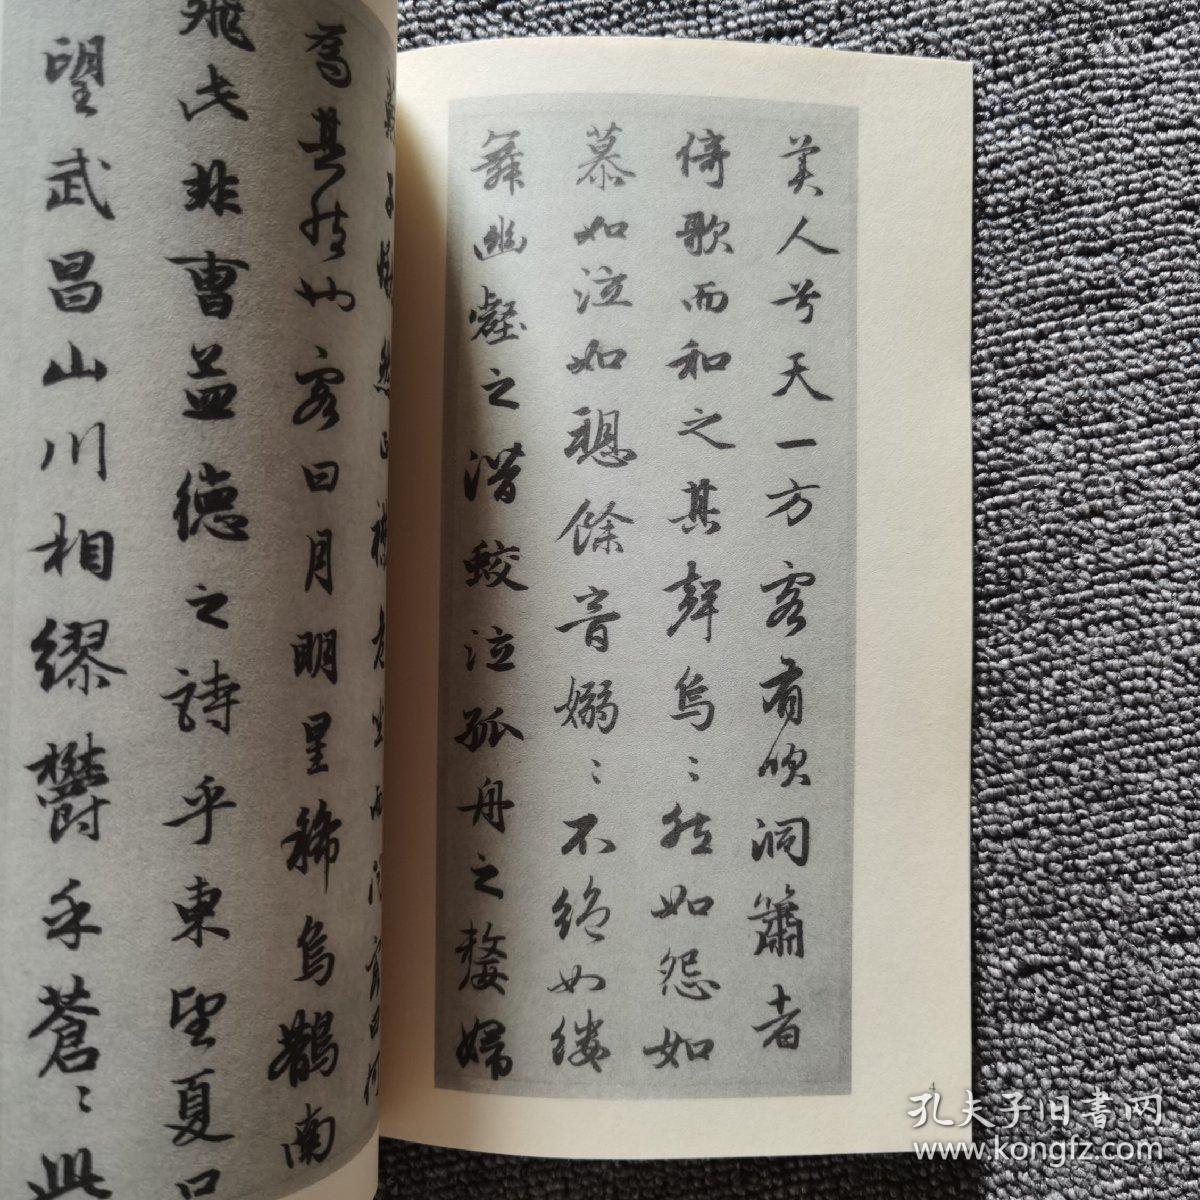 美人兮天一方客有吹洞簫者
倚歌而和之其聲烏〻然如怨如
慕如泣如愬餘音嫋〻不絕如縷
舞幽壑之潛蛟泣孤舟之嫠婦
蘇子愀然正襟危坐而問客曰何
為其然也客曰月明星稀烏鵲南
飛此非曹孟德之詩乎東望夏口
望武昌山川相繆鬱乎蒼〻此
4
孔夫子旧書网
www.kongfz.com